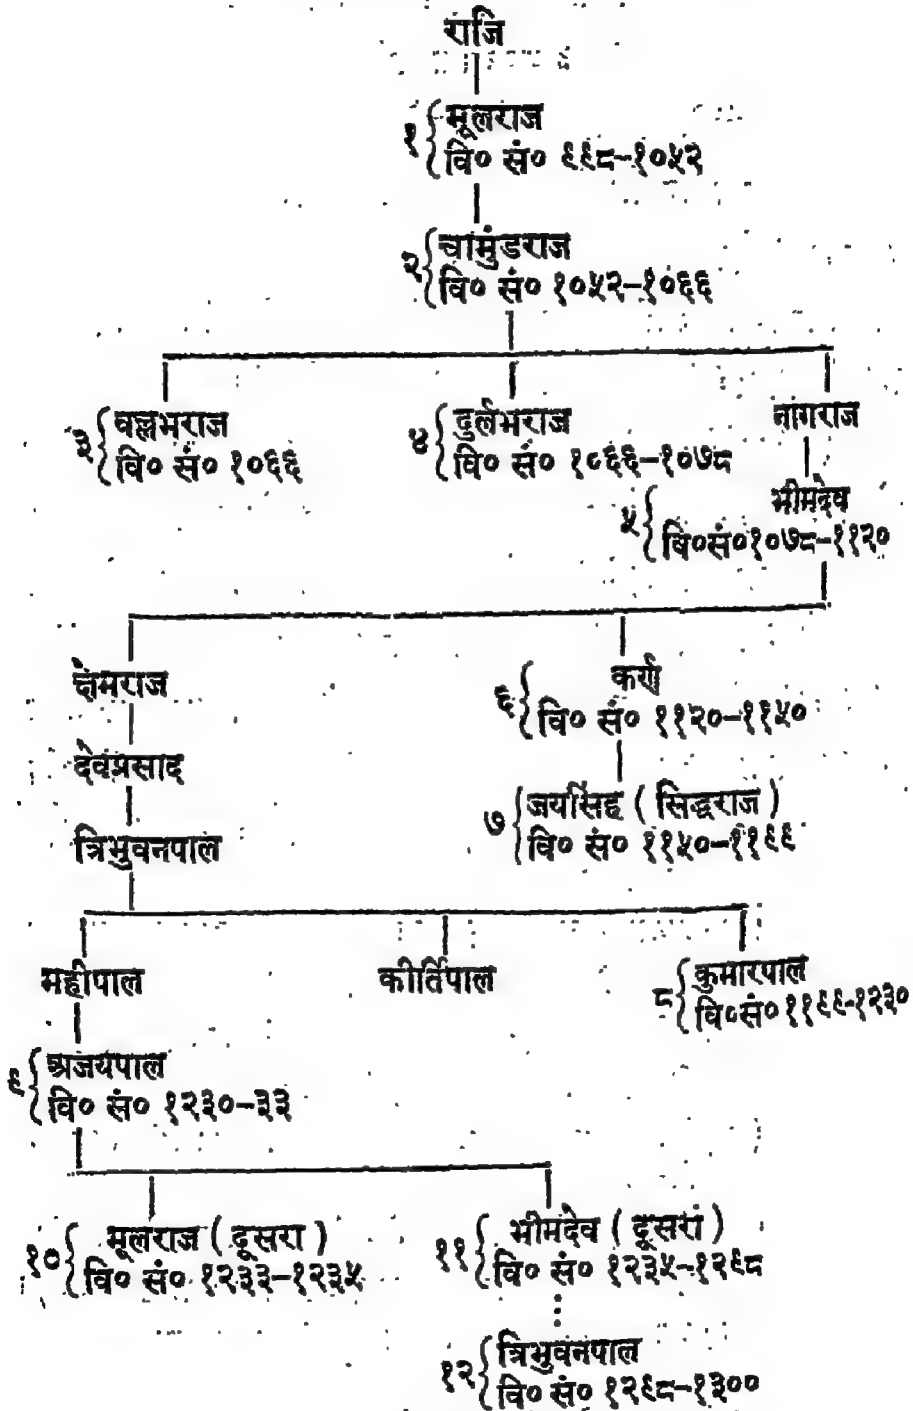 राजि
१ मूलराज
वि० सं० ९९८-१०५२
२ चामुंडराज
वि० सं० १०५२-१०६६
३ वल्लभराज
वि० सं० १०६६
४ दुर्लभराज
वि० सं० १०६६-१०७८
नागराज
५ भीमदेव
वि०सं०१०७८-११२०
क्षेमराज
६ कर्ण
वि० सं० ११२०-११५०
देवप्रसाद
७ जयसिंह ( सिद्धराज )
वि० सं० ११५०-११९९
त्रिभुवनपाल
महीपाल
कीर्तिपाल
८ कुमारपाल
वि०सं० ११९९-१२३०
९ अजयपाल
वि० सं० १२३०-३३
१० मूलराज ( दूसरा )
वि० सं० १२३३-१२३५
११ भीमदेव ( दूसरा )
वि० सं० १२३५-१२९८
१२ त्रिभुवनपाल
वि० सं० १२९८-१३००